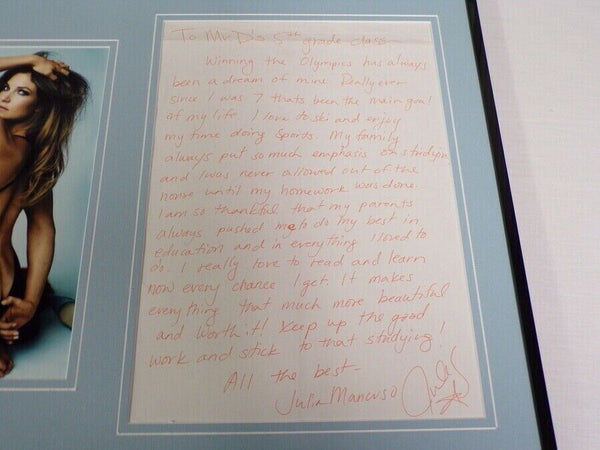 To Mr. D's 5th grade class -
Winning the Olympics has always
been a dream of mine. Really ever
since I was 7 thats been the main goal
of my life. I love to ski and enjoy
my time doing sports. My family
always put so much emphasis on studying
and I was never allowed out of the
house until my homework was done.
I am so thankful that my parents
always pushed me to do my best in
education and in everything I loved to
do. I really love to read and learn
now every chance I get. It makes
everything that much more beautiful
and worth it! Keep up the good
work and stick to that studying!
All the best -
Julia Mancuso